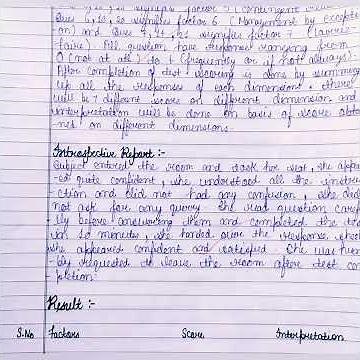 Ques 6, 13, 20 signifies factor 6 (Management by excepti-
on) and Ques 7, 14, 21 signifies factor 7 (Laissez-
faire). All question have responses ranging from
0 (not at all) to 4 (frequently or if not always).
After completion of test scoring is done by summing
up all the responses of each dimension. there
will be 7 different scores on different dimension and
interpretation will be done on basis of score obtai-
ned on different dimensions.
Introspective Report :-
Subject entered the room and took her seat, she appea-
ed quite confident, she understood all the instru-
ction and did not had any confusion, she did
not ask for any query. She read question careful-
ly before answering them and completed the test
in 10 minutes, she handed over the response sheet
she appeared confident and satisfied. She was hum-
bly requested to leave the room after test com-
pletion.
Result :-
S.No Factors Score Interpretation